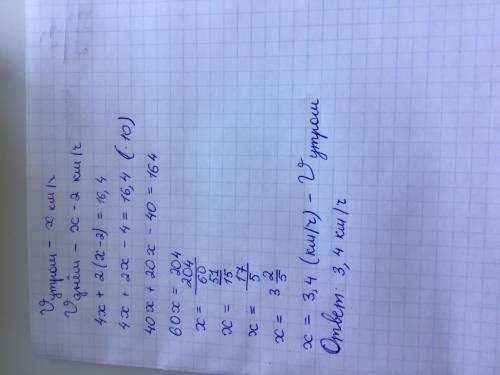 Vутром - x км/ч
Vднём - x - 2 км/ч
4x + 2(x-2) = 16,4
4x + 2x - 4 = 16,4 (·10)
40x + 20x - 40 = 164
60x = 204
x = 204/60
x = 51/15
x = 17/5
x = 3 2/5
x = 3,4 (км/ч) - Vутром
Ответ: 3,4 км/ч